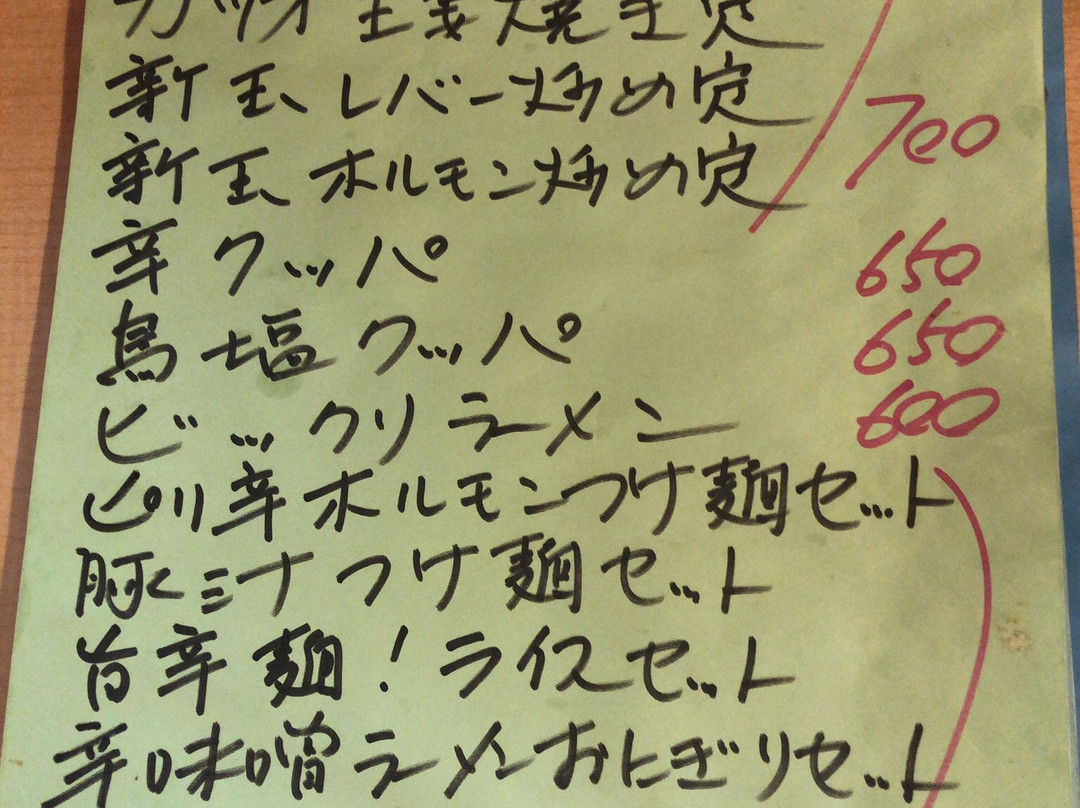 カツオ生姜焼き定
新玉レバー炒め定
新玉ホルモン炒め定 700
辛クッパ 650
鳥塩クッパ 650
ビックリラーメン 600
ピリ辛ホルモンつけ麺セット
豚ミナつけ麺セット
旨辛麺!ライスセット
辛味噌ラーメンおにぎりセット